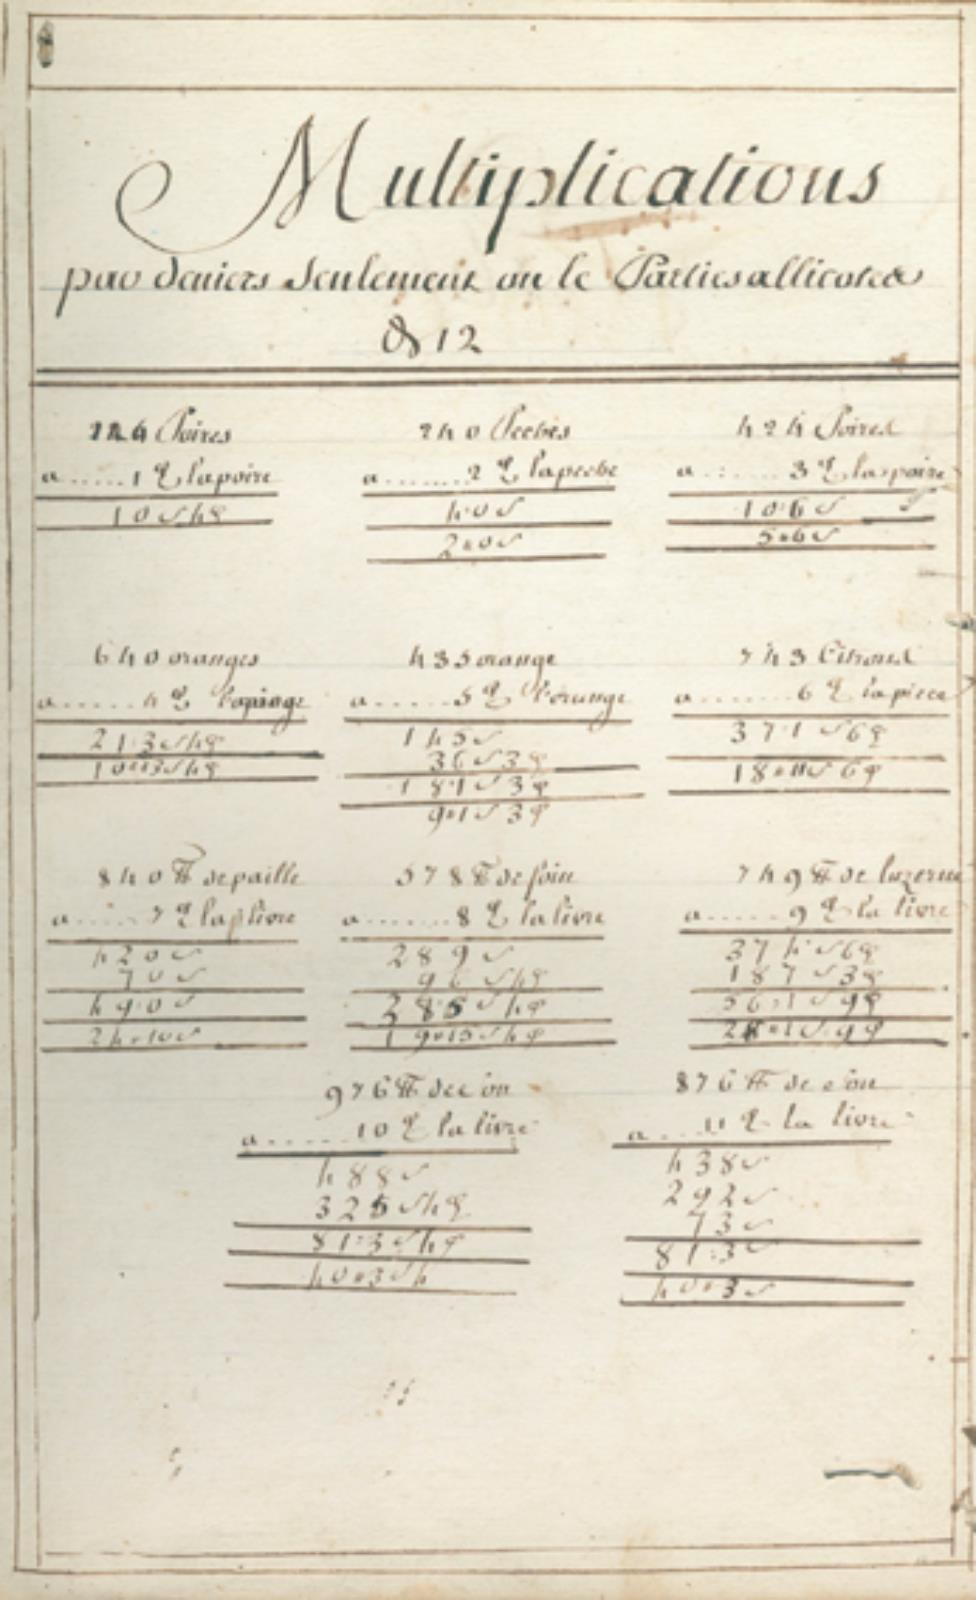 Multiplications
par deniers seulement ou le Parties allicotes
de 12
124 Poires
a ...... 1 d la poire
10 s 4 d
240 Peches
a ........ 2 d la peche
40 s
2 " 0 s
424 Poires
a ........ 3 d la poire
10.6 s
5 " 6 s
640 oranges
a ...... 4 d
21.3 s 4 d
10 " 13 s 4 d
435 orange
a ...... 5 d l'orange
145 s
36 s 3 d
181 s 3 d
9 " 1 s 3 d
743 Citrons
a ........ 6 d la piece
371 s 6 d
18 " 11 s 6 d
840 ₶ de paille
a ...... 7 d la livre
420 s
70 s
49.0 s
24 " 10 s
578 ₶ de foin
a ........ 8 d la livre
289 s
96 s 4 d
385 s 4 d
19 " 5 s 4 d
749 ₶ de luzerne
a ........ 9 d la livre
374 s 6 d
187 s 3 d
561 s 9 d
28 " 1 s 9 d
976 ₶ de
a ........ 10 d la livre
488 s
325 s 4 d
81.3 s 4 d
40 " 3 s 4
876 ₶ de
a .... 11 d la livre
438 s
292 s
73 s
81.3 s
40 " 3 s